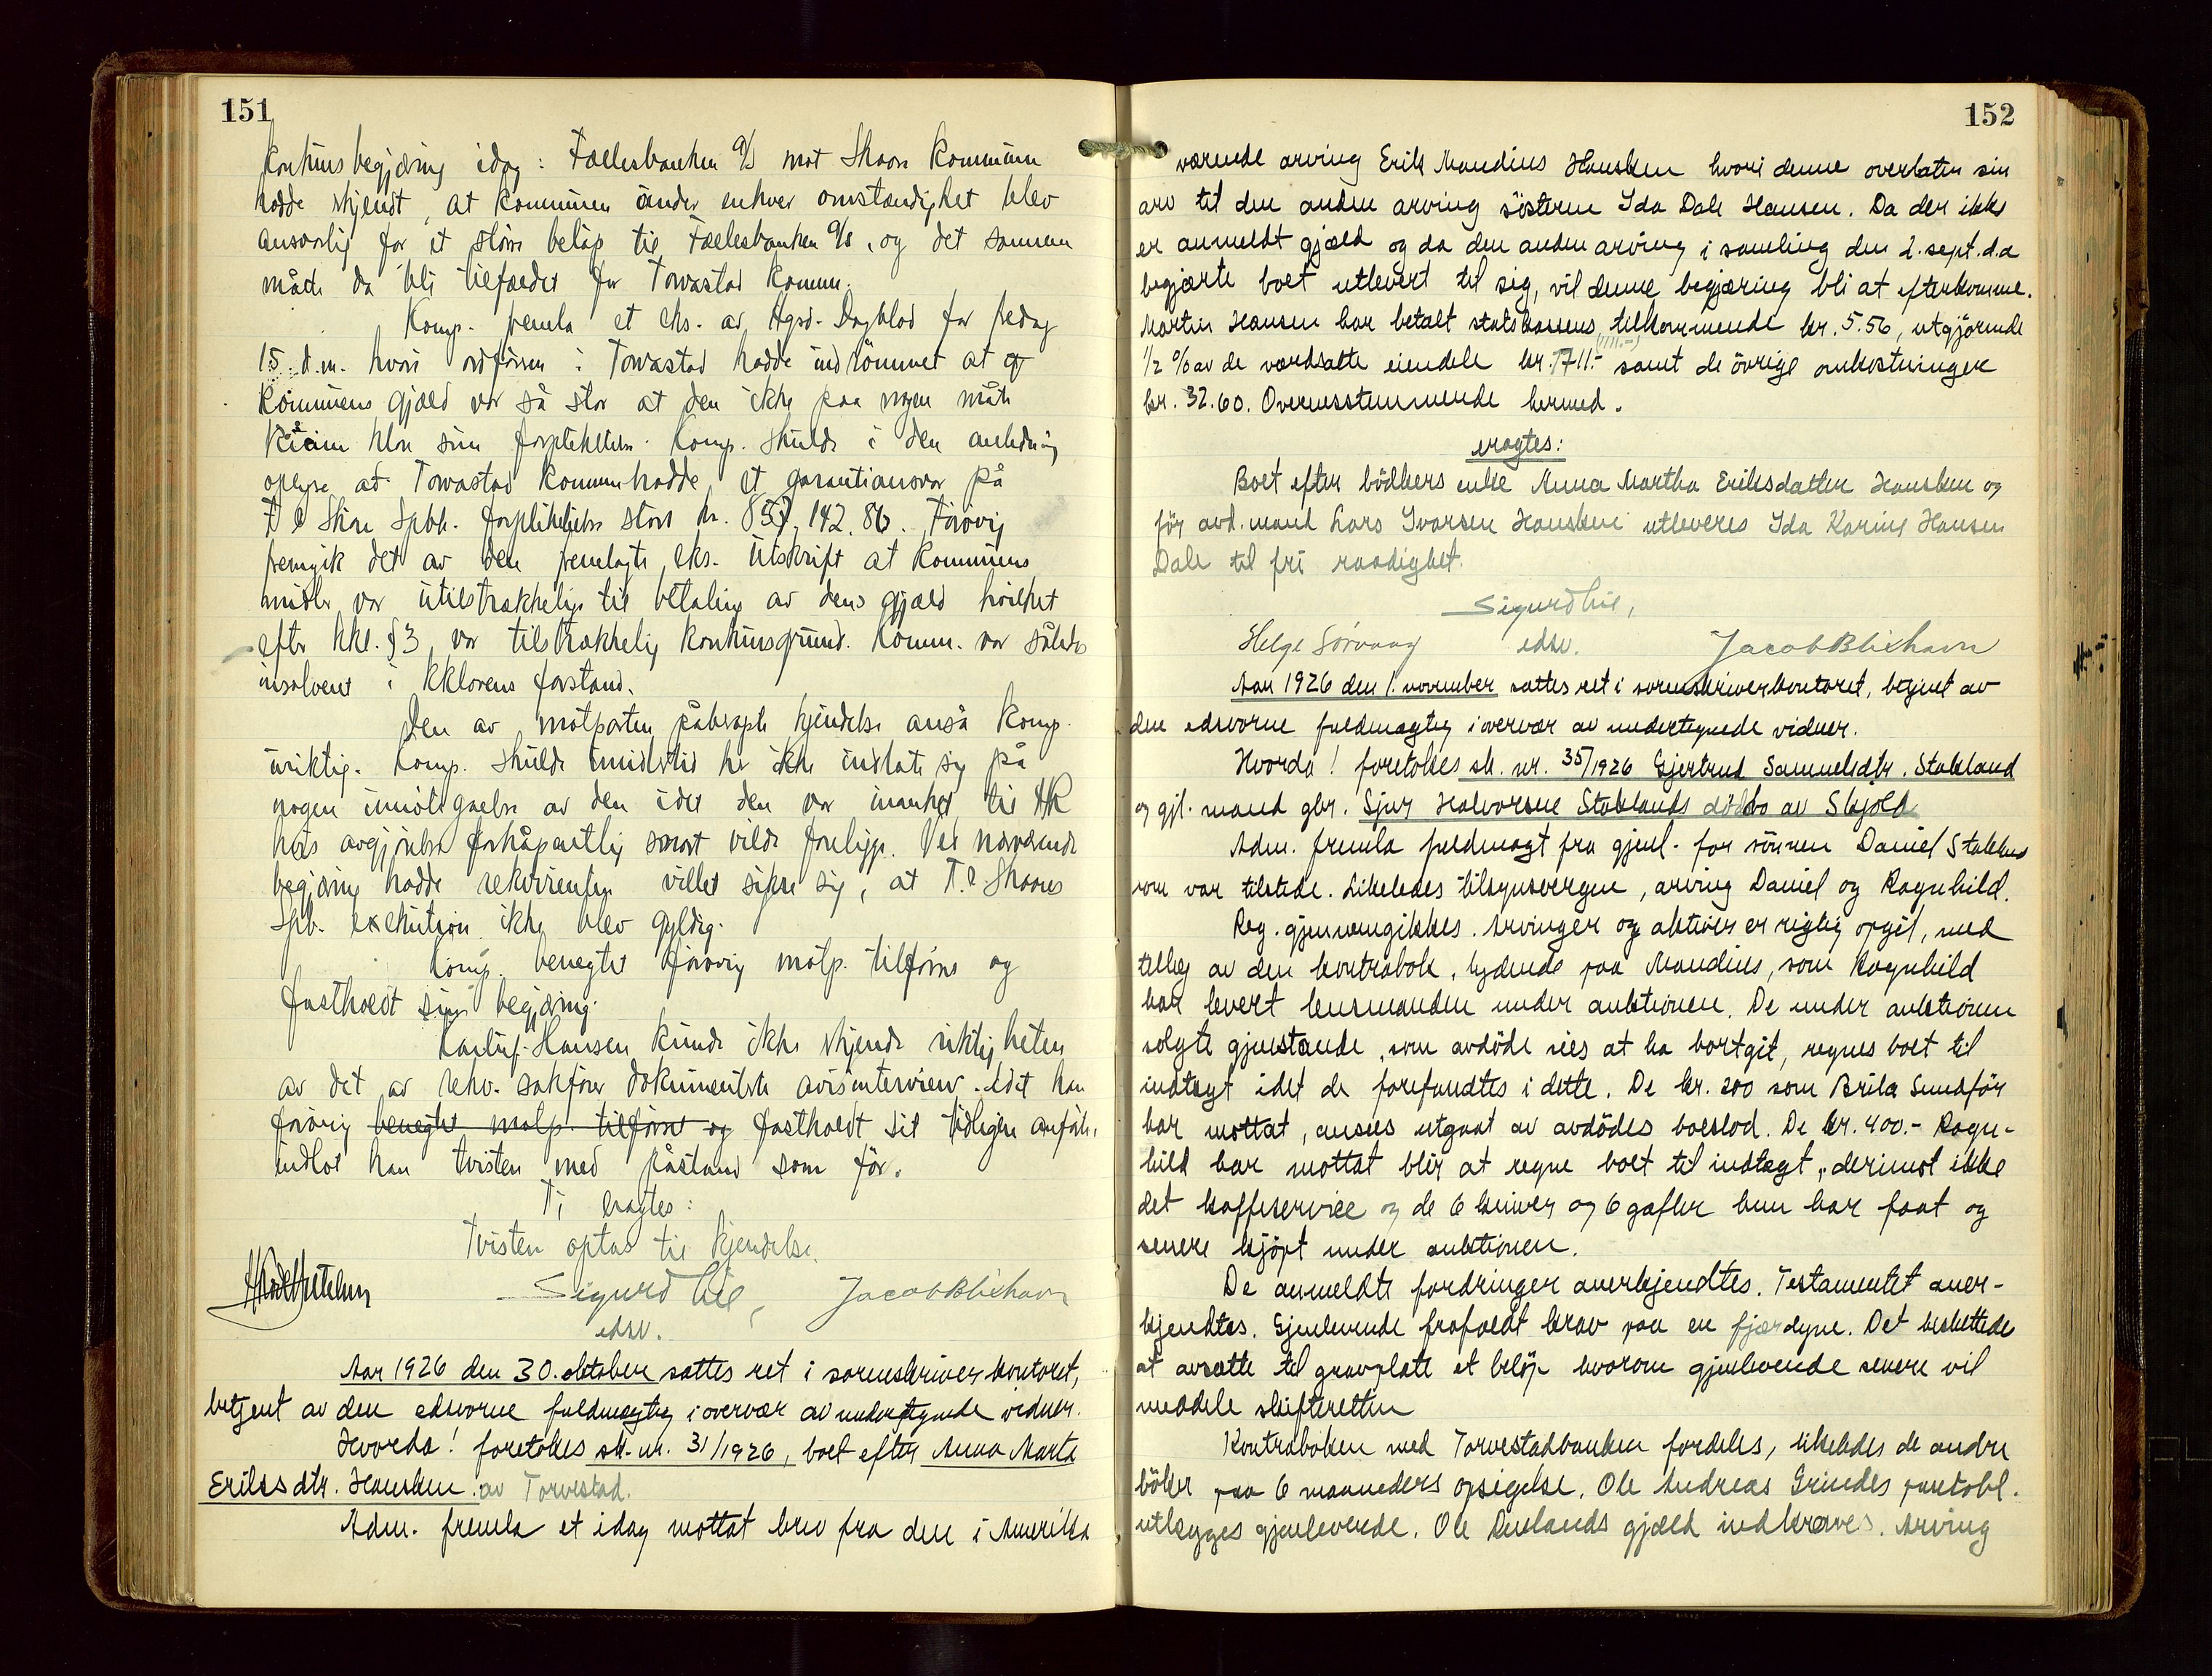 151
konkursbegjæring idag: Fællesbanken A/S mot Skaare kommune
hadde skjendt, at kommunen under enhver omstændighet blev
ansvarlig for et större belöp til Fællesbanken A/S, og det samme
måtte da bli tilfældet for Torvastad komm.
Komp. fremla et eks. av Hgsd. Dagblad for fredag
15. d.m. hvori ordföreren i Torvastad hadde indrömmet at
kommunens gjæld var så stor at den ikke paa nogen måte
kunde klare sine forpliktelser. Komp. skulde i den anledning
oplyse at Torvastad kommune hadde et garantiansvar på
T & Skåre Spbk. forpliktelser stort kr. 857,142.86. Forövrig
fremgik det av den fremlagte eks. utskrift at kommunens
midler var utilstrækkelige til betaling av dens gjæld hvilket
efter kkl. § 3 var tilstrækkelig konkursgrund. Komm. var således
insolvent i kklovens forstand.
Den av motparten påberopte kjendelse anså komp.
uriktig. Komp. skulde imidlertid her ikke indlate sig på
nogen imötegåelse av den idet den var inanket til HR
hvis avgjörelse forhåpentlig snart vilde foreligge. Ved nærværende
begjæring hadde rekvirenten villet sikre sig, at T. & Skaares
Spb. exekution ikke blev gyldig.
Komp. benegtet forövrig motp. tilförsel og
fastholdt sin begjæring.
Hansen kunde ikke skjende riktigheten
av det av rekv. sakförer dokumenterte avisinterview. Idet han
forövrig benegtet motp. tilförsel og fastholdt sit tidligere anförte,
indlot han tvisten med påstand som för.
Ti eragtes:
Tvisten optas til kjendelse.
Sigurd Lie, Jacob Blixhavn
edsv.
Aar 1926 den 30. oktober sattes ret i sorenskriverkontoret,
betjent av den edsvorne fuldmægtig i overvær av undertegnede vidner.
Hvorda! foretokes sk. nr. 31/1926, boet efter Anna Marta
Eriksdtr. Hausken av Torvestad.
Adm. fremla et idag mottat brev fra den i Amerika
152
værende arving Erik Mandius Hausken hvori denne overlater sin
arv til den anden arving sösteren Ida Dale Hansen. Da der ikke
er anmeldt gjæld og da den anden arving i samling den 2. sept. d.a
begjærte boet utlevert til sig, vil denne begjæring bli at efterkomme.
Martin Hansen har betalt statskassens tilkommende kr. 5.56, utgjörende
1/2 % av de værdsatte eiendele kr. 1711.- (1111.-) samt de övrige omkostninger
kr. 32.60. Overensstemmende hermed.
eragtes:
Boet efter bödkers enke Anna Martha Eriksdatter Hausken og
för avd. mand Lars Ivarsen Hausken utleveres Ida Karine Hansen
Dale til fri raadighet.
Sigurd Lie,
Helge Sörvaag edsv. Jacob Blixhavn
Aar 1926 den 1. november sattes ret i sorenskriverkontoret, betjent av
den edsvorne fuldmægtig i overvær av undertegnede vidner.
Hvorda! foretokes sk. nr. 35/1926 Gjertrud Samuelsdtr. Stakland
og gjl. mand gbr. Sjur Halvorsen Staklands dödsbo av Skjold
Adm. fremla fuldmagt fra gjenl. for sönnen Daniel Stakland
som var tilstede. Likeledes tilsynsvergen, arving Daniel og Ragnhild.
Reg. gjennemgikkes. Arvinger og aktiver er rigtig opgit, med
tillæg av den kontrabok, lydende paa Mandius, som Ragnhild
har levert lensmanden under auktionen. De under auktionen
solgte gjenstande, som avdöde sies at ha bortgit, regnes boet til
indtægt idet de forefandtes i dette. De kr. 200 som Brita Sundför
har mottat, ansees utgaat av avdödes boeslod. De kr. 400.- Ragn-
hild har mottat blir at regne boet til indtægt, derimot ikke
det kaffeservice og de 6 kniver og 6 gafler hun har faat og
senere kjöpt under auktionen.
De anmeldte fordringer anerkjendtes. Testamentet aner-
kjendtes. Gjenlevende frafaldt krav paa en fjærdyne. Det besluttedes
at avsætte til gravplate et belöp hvorom gjenlevende senere vil
meddele skifteretten
Kontraboken med Torvestadbanken fordeles, likeledes de andre
böker paa 6 maaneders opsigelse. Ole Andreas Grindes pantobl.
utlægges gjenlevende. Ole gjæld indkræves. Arving